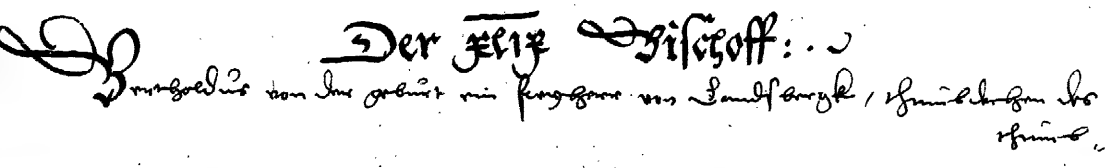 Der xlix Bischoff:
Bertholdus von der geburt ein freyherr von Landsbergk, thumbdechen des
thumbs